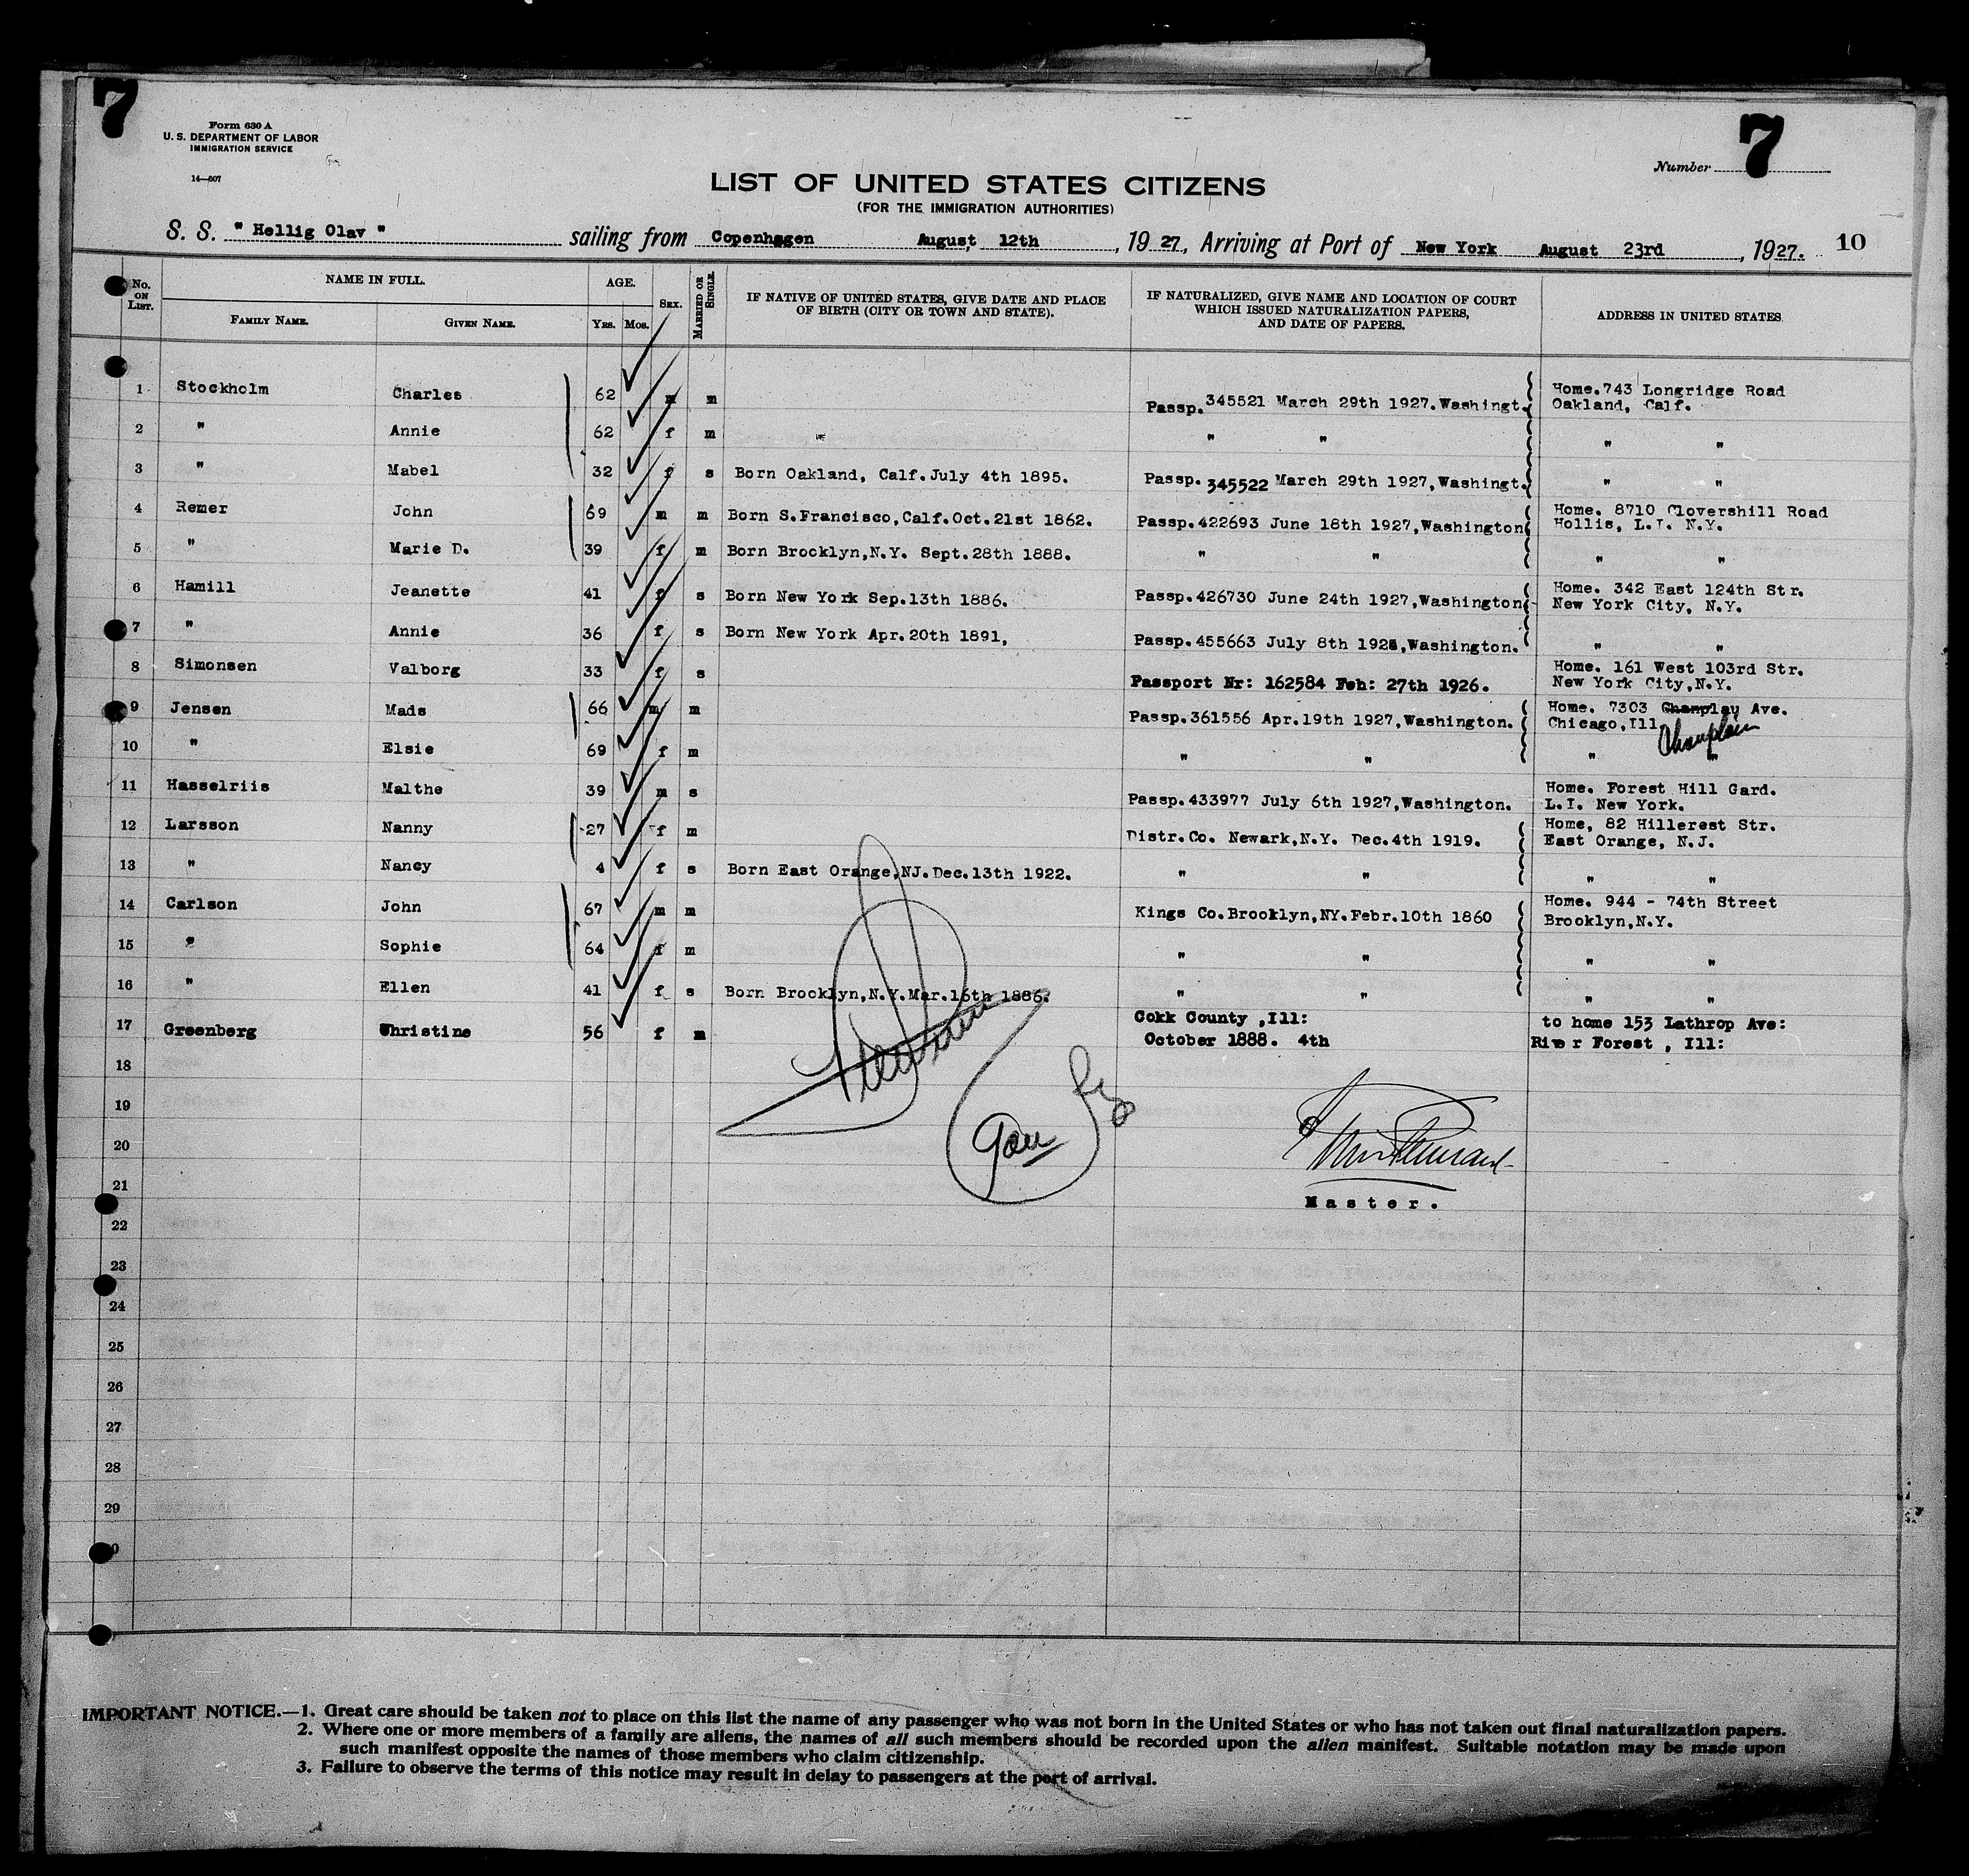 7
Form 630 A
U. S. DEPARTMENT OF LABOR
IMMIGRATION SERVICE
14—607
Number 7
LIST OF UNITED STATES CITIZENS
(FOR THE IMMIGRATION AUTHORITIES)
S. S. " Hellig Olav " sailing from Copenhagen August, 12th , 19 27, Arriving at Port of New York August 23rd , 1927. 10
No. ON LIST. NAME IN FULL. AGE. SEX. MARRIED OR SINGLE. IF NATIVE OF UNITED STATES, GIVE DATE AND PLACE OF BIRTH (CITY OR TOWN AND STATE). IF NATURALIZED, GIVE NAME AND LOCATION OF COURT WHICH ISSUED NATURALIZATION PAPERS, AND DATE OF PAPERS. ADDRESS IN UNITED STATES
FAMILY NAME. GIVEN NAME. YRS. MOS.
1 Stockholm Charles 62 m m Passp. 345521 March 29th 1927. Washingt. Home. 743 Longridge Road
Oakland, Calf.
2 " Annie 62 f m " " " "
3 " Mabel 32 f s Born Oakland, Calf. July 4th 1895. Passp. 345522 March 29th 1927, Washingt. " "
4 Remer John 69 m m Born S.Francisco, Calf. Oct. 21st 1862. Passp. 422693 June 18th 1927, Washington Home. 8710 Clovershill Road
Hollis, L.I. N.Y.
5 " Marie D. 39 f m Born Brooklyn, N.Y. Sept. 28th 1888. " " " "
6 Hamill Jeanette 41 f s Born New York Sep. 13th 1886. Passp. 426730 June 24th 1927, Washington Home. 342 East 124th Str.
New York City, N.Y.
7 " Annie 36 f s Born New York Apr. 20th 1891, Passp. 455663 July 8th Washington. " "
8 Simonsen Valborg 33 f s Passport Nr: 162584 Feh: 27th 1926. Home. 161 West 103rd Str.
New York City, N.Y.
9 Jensen Mads 66 m m Passp. 361556 Apr. 19th 1927, Washington. Home. 7303 Chanplau Ave.
Chicago, Ill Champlain
10 " Elsie 69 f m " " " "
11 Hasselriis Malthe 39 m s Passp. 433977 July 6th 1927, Washington. Home. Forest Hill Gard.
L.I. New York.
12 Larsson Nanny 27 f m Distr. Co. Newark, N.Y. Dec. 4th 1919. Home, 82 Hillerest Str.
East Orange, N.J.
13 " Nancy 4 f s Born East Orange, NJ. Dec. 13th 1922. " " " "
14 Carlson John 67 m m Kings Co. Brooklyn, NY. Febr. 10th 1860 Home. 944 - 74th Street
Brooklyn, N.Y.
15 " Sophie 64 f m " " " "
16 " Ellen 41 f s Born Brooklyn, N.Y. Mar. 16th 1886. " " " "
17 Greenberg Christine 56 f m Cokk County , Ill:
October 1888. 4th to home 153 Lathrop Ave:
River Forest , Ill:
18
19
20
21
Master.
22
23
24
25
26
27
28
29
IMPORTANT NOTICE.—1. Great care should be taken not to place on this list the name of any passenger who was not born in the United States or who has not taken out final naturalization papers.
2. Where one or more members of a family are aliens, the names of all such members should be recorded upon the alien manifest. Suitable notation may be made upon
such manifest opposite the names of those members who claim citizenship.
3. Failure to observe the terms of this notice may result in delay to passengers at the port of arrival.